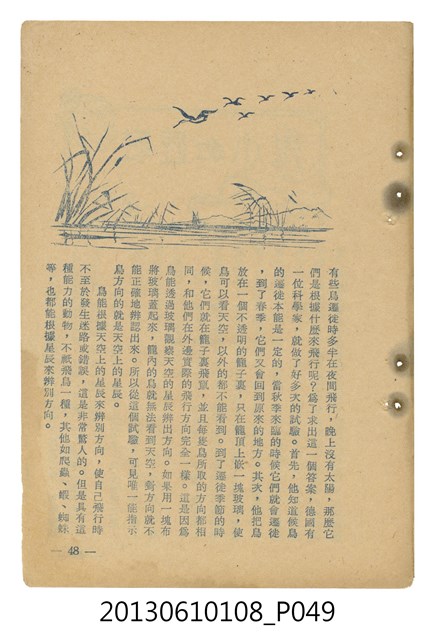 有些鳥遷徙時多半在夜間飛行，晚上沒有太陽，那麼它
們是根據什麼來飛行呢？為了求出這一個答案，德國有
一位科學家，就做了好多次的試驗。首先，他知道候鳥
的遷徙本能是一定的，當秋季來臨的時候它們就會遷徙
，到了春季，它們又會回到原來的地方。其次，他把鳥
放在一個不透明的籠子裏，只在籠頂上嵌一塊玻璃，使
鳥可以看天空，以外的都不能看到。到了遷徙季節的時
候，它們就在籠子裏飛竄，並且每處鳥所取的方向都相
同，和他們在外邊實際的飛行方向完全一樣。這是因為
鳥能透過玻璃觀察天空的星辰辨出方向。如果用一塊布
將玻璃蓋起來，籠內的鳥就無法看到天空，對方向就不
能正確地辨認出來。所以從這個試驗，可見唯一能指示
鳥方向的就是天空上的星辰。
鳥能根據天空上的星辰來辨別方向，使自己飛行時
不至於發生迷路或錯誤，這是非常驚人的。但是具有這
種能力的動物，不祇飛鳥一種，其他如爬蟲、蝦、蜘蛛
等，也都能根據星辰來辨別方向。
— 48 —
20130610108_P049